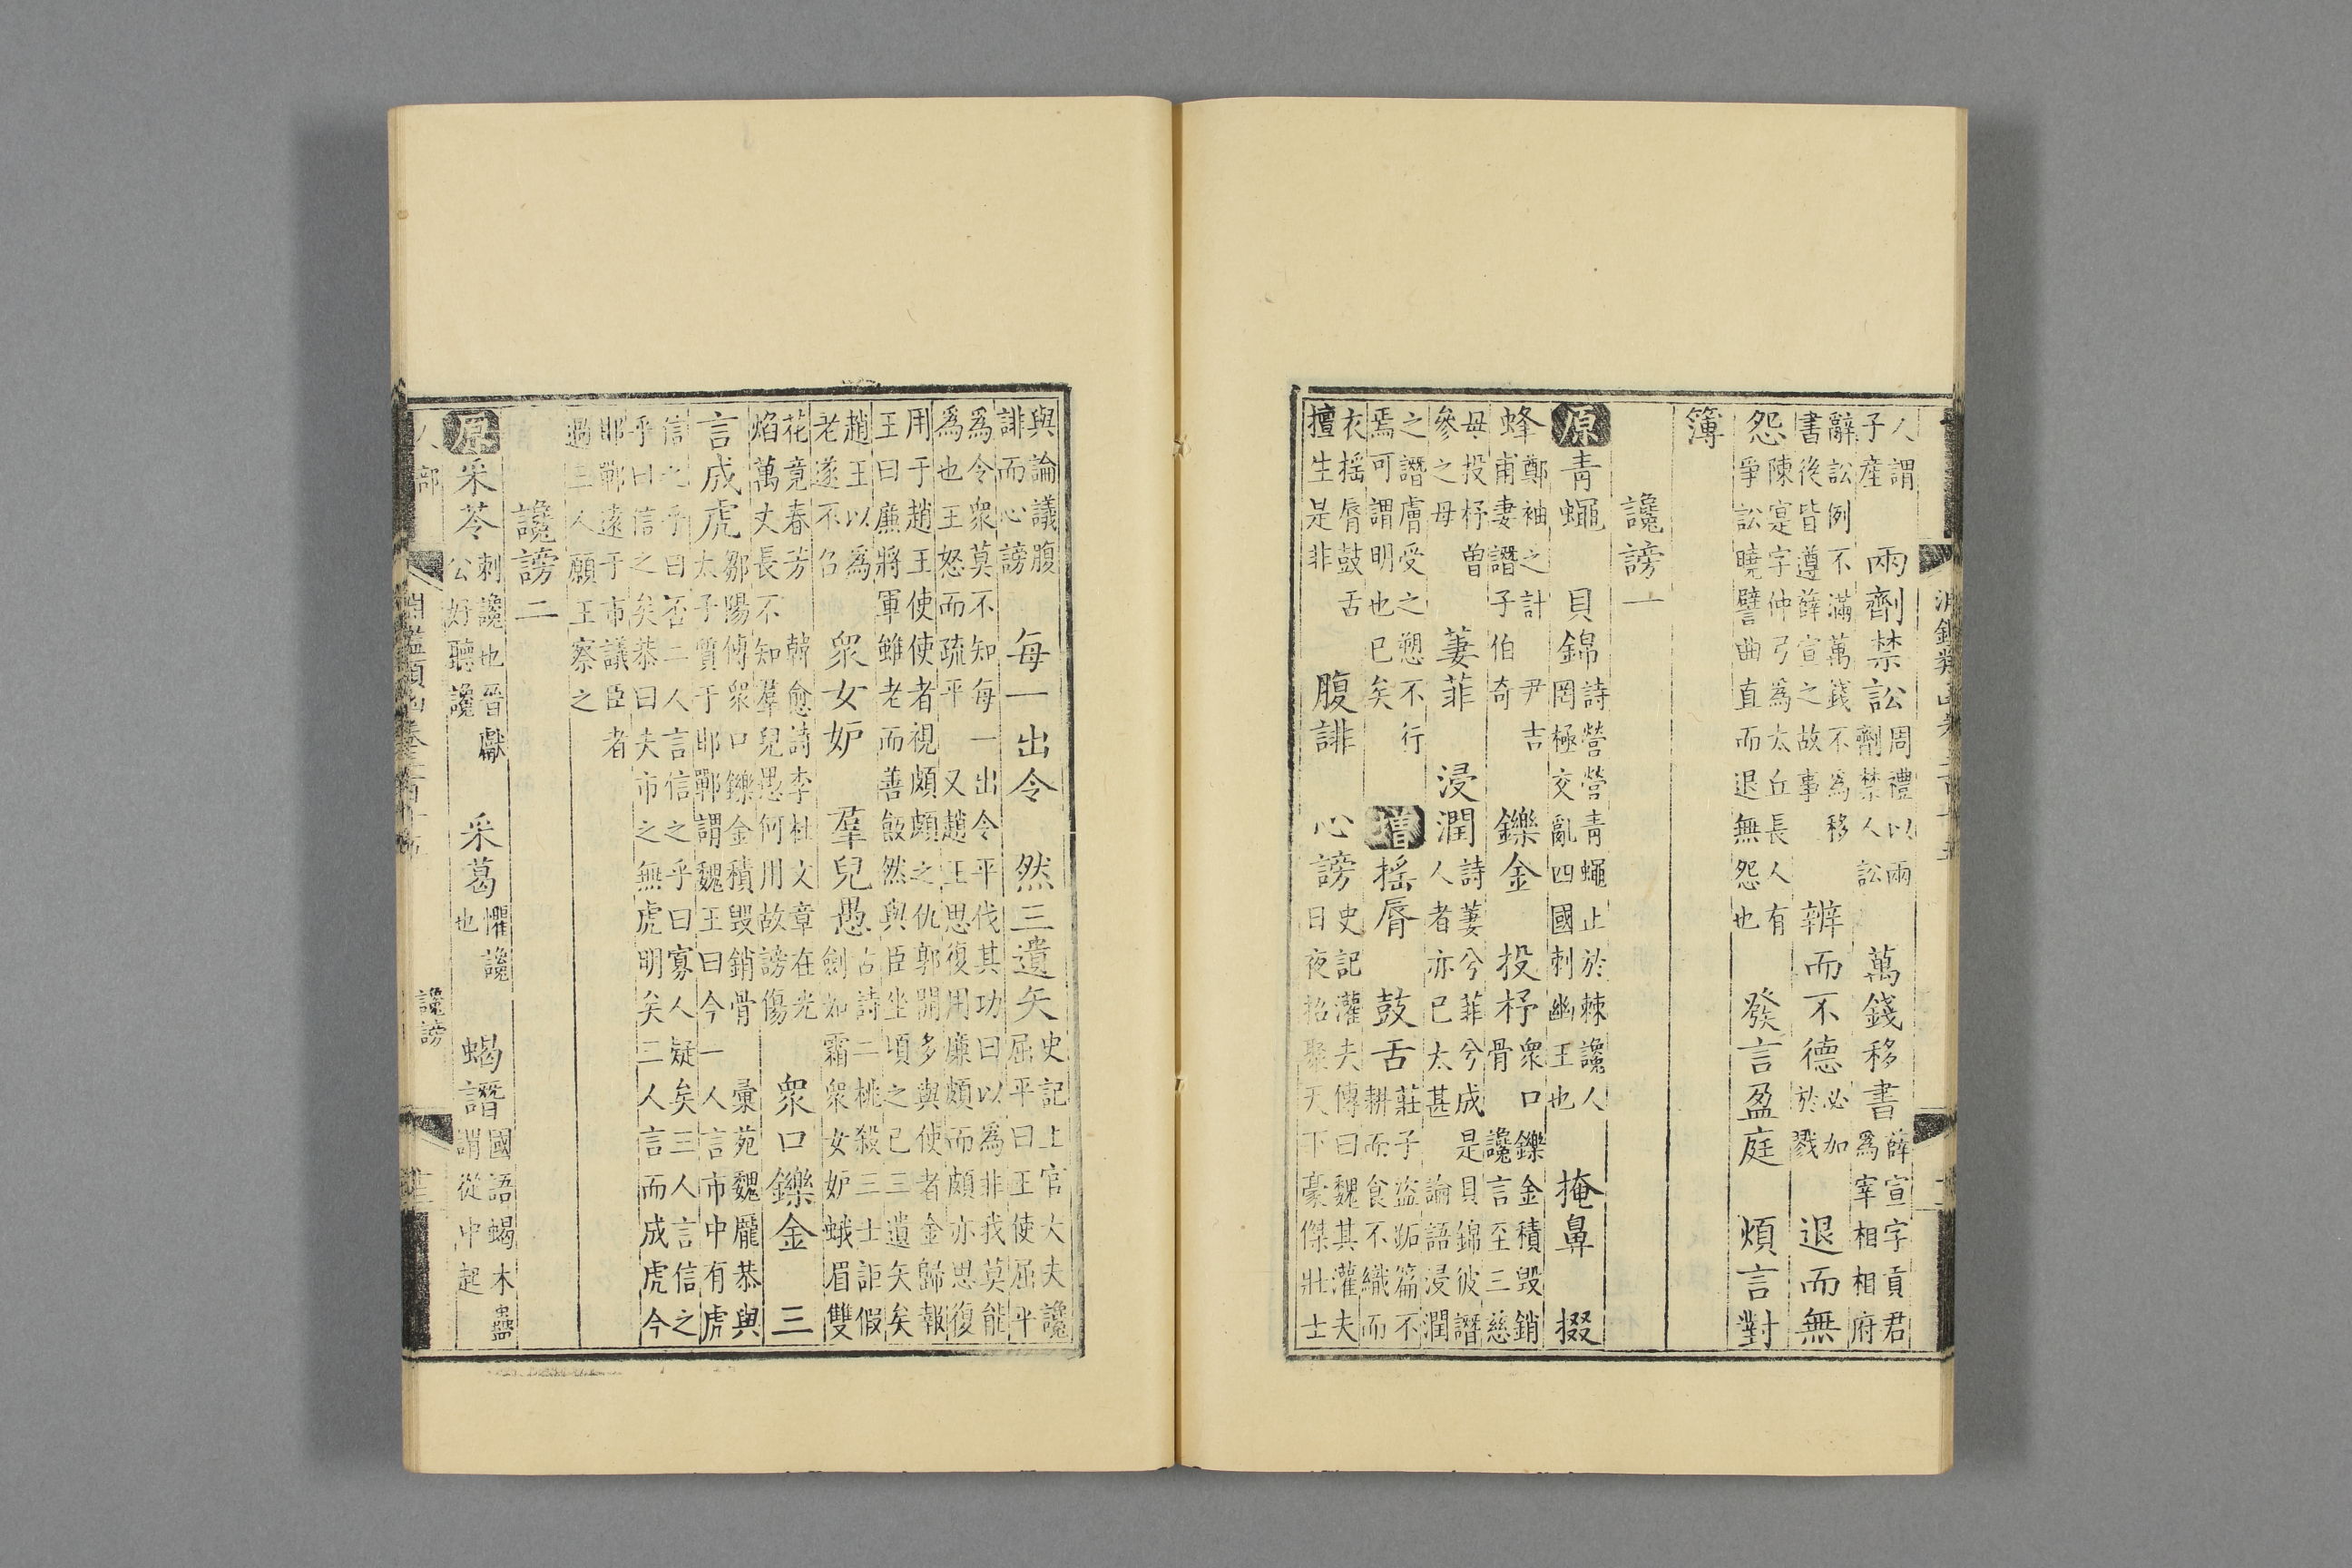 人謂子產　兩劑禁訟周禮以兩劑禁人訟　萬錢移書薛宣字貢君爲宰相相府
辭訟例不滿萬錢不爲移書後皆遵薛宣之故事　辨而不德必加於戮　退而無
怨陳寔字仲弓爲太丘長人有爭訟曉譬曲直而退無怨也　發言盈庭　煩言對
簿
讒謗一
原青蠅　貝錦詩營營青蠅止於棘讒人罔極交亂四國刺幽王也　掩鼻　掇
蜂鄭袖之計尹吉甫妻譖子伯奇　鑠金　投杼衆口鑠金積毀銷骨讒言至三慈
母投杼曾參之母　萋菲　浸潤詩萋兮菲兮成是貝錦彼譖人者亦已太甚論語浸潤
之譖膚受之愬不行焉可謂明也已矣　增搖脣　鼓舌莊子盜跖篇不耕而食不織而
衣搖脣鼓舌擅生是非　腹誹　心謗史記灌夫傳曰魏其灌夫日夜招聚天下豪傑壯士
與論議腹誹而心謗　每一出令　然三遺矢史記上官大夫讒屈平曰王使屈平
爲令衆莫不知每一出令平伐其功曰以爲非我莫能爲也王怒而疏平又趙王思復用廉頗而頗亦思復
用于趙王使使者視頗頗之仇郭開多與使者金歸報王曰廉將軍雖老而善飯然與臣坐頃之已三遺矢矣
趙王以爲老遂不召　衆女妒　羣兒愚古詩二桃殺三士詎假劍如霜衆女妒蛾眉雙
花竟春芳韓愈詩李杜文章在光焰萬丈長不知羣兒愚何用故謗傷　衆口鑠金　三
言成虎鄒陽傳衆口鑠金積毀銷骨彙苑魏龐恭與太子質于邯鄲謂魏王曰今一人言市中有虎
信之乎曰否二人言信之乎曰寡人疑矣三人言信之乎曰信之矣恭曰夫市之無虎明矣三人言而成虎今
邯鄲遠于市議臣者過三人願王察之
讒謗二
原采苓刺讒也晉獻公好聽讒　采葛懼讒也　蝎譖國語蝎木蟲謂從中起
人部
讒謗